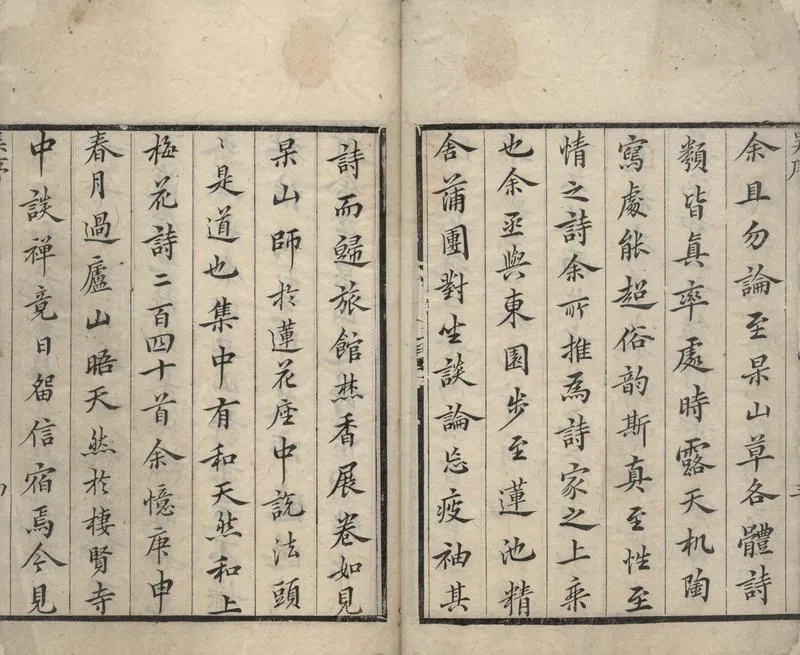 余且勿論至杲山草各體詩
類皆眞率處時露天机陶
寫處能超俗韵斯真至性至
情之詩余所推為詩家之上乘
也余亟與東園步至蓮池精
舍蒲團對坐談論忘疲袖其
詩而歸旅館焚香展卷如見
杲山師於蓮花座中說法頭
頭是道也集中有和天然和上
梅花詩二百四十首余憶庚申
春月過廬山晤天然於棲賢寺
中談禪竟日留信宿焉今見